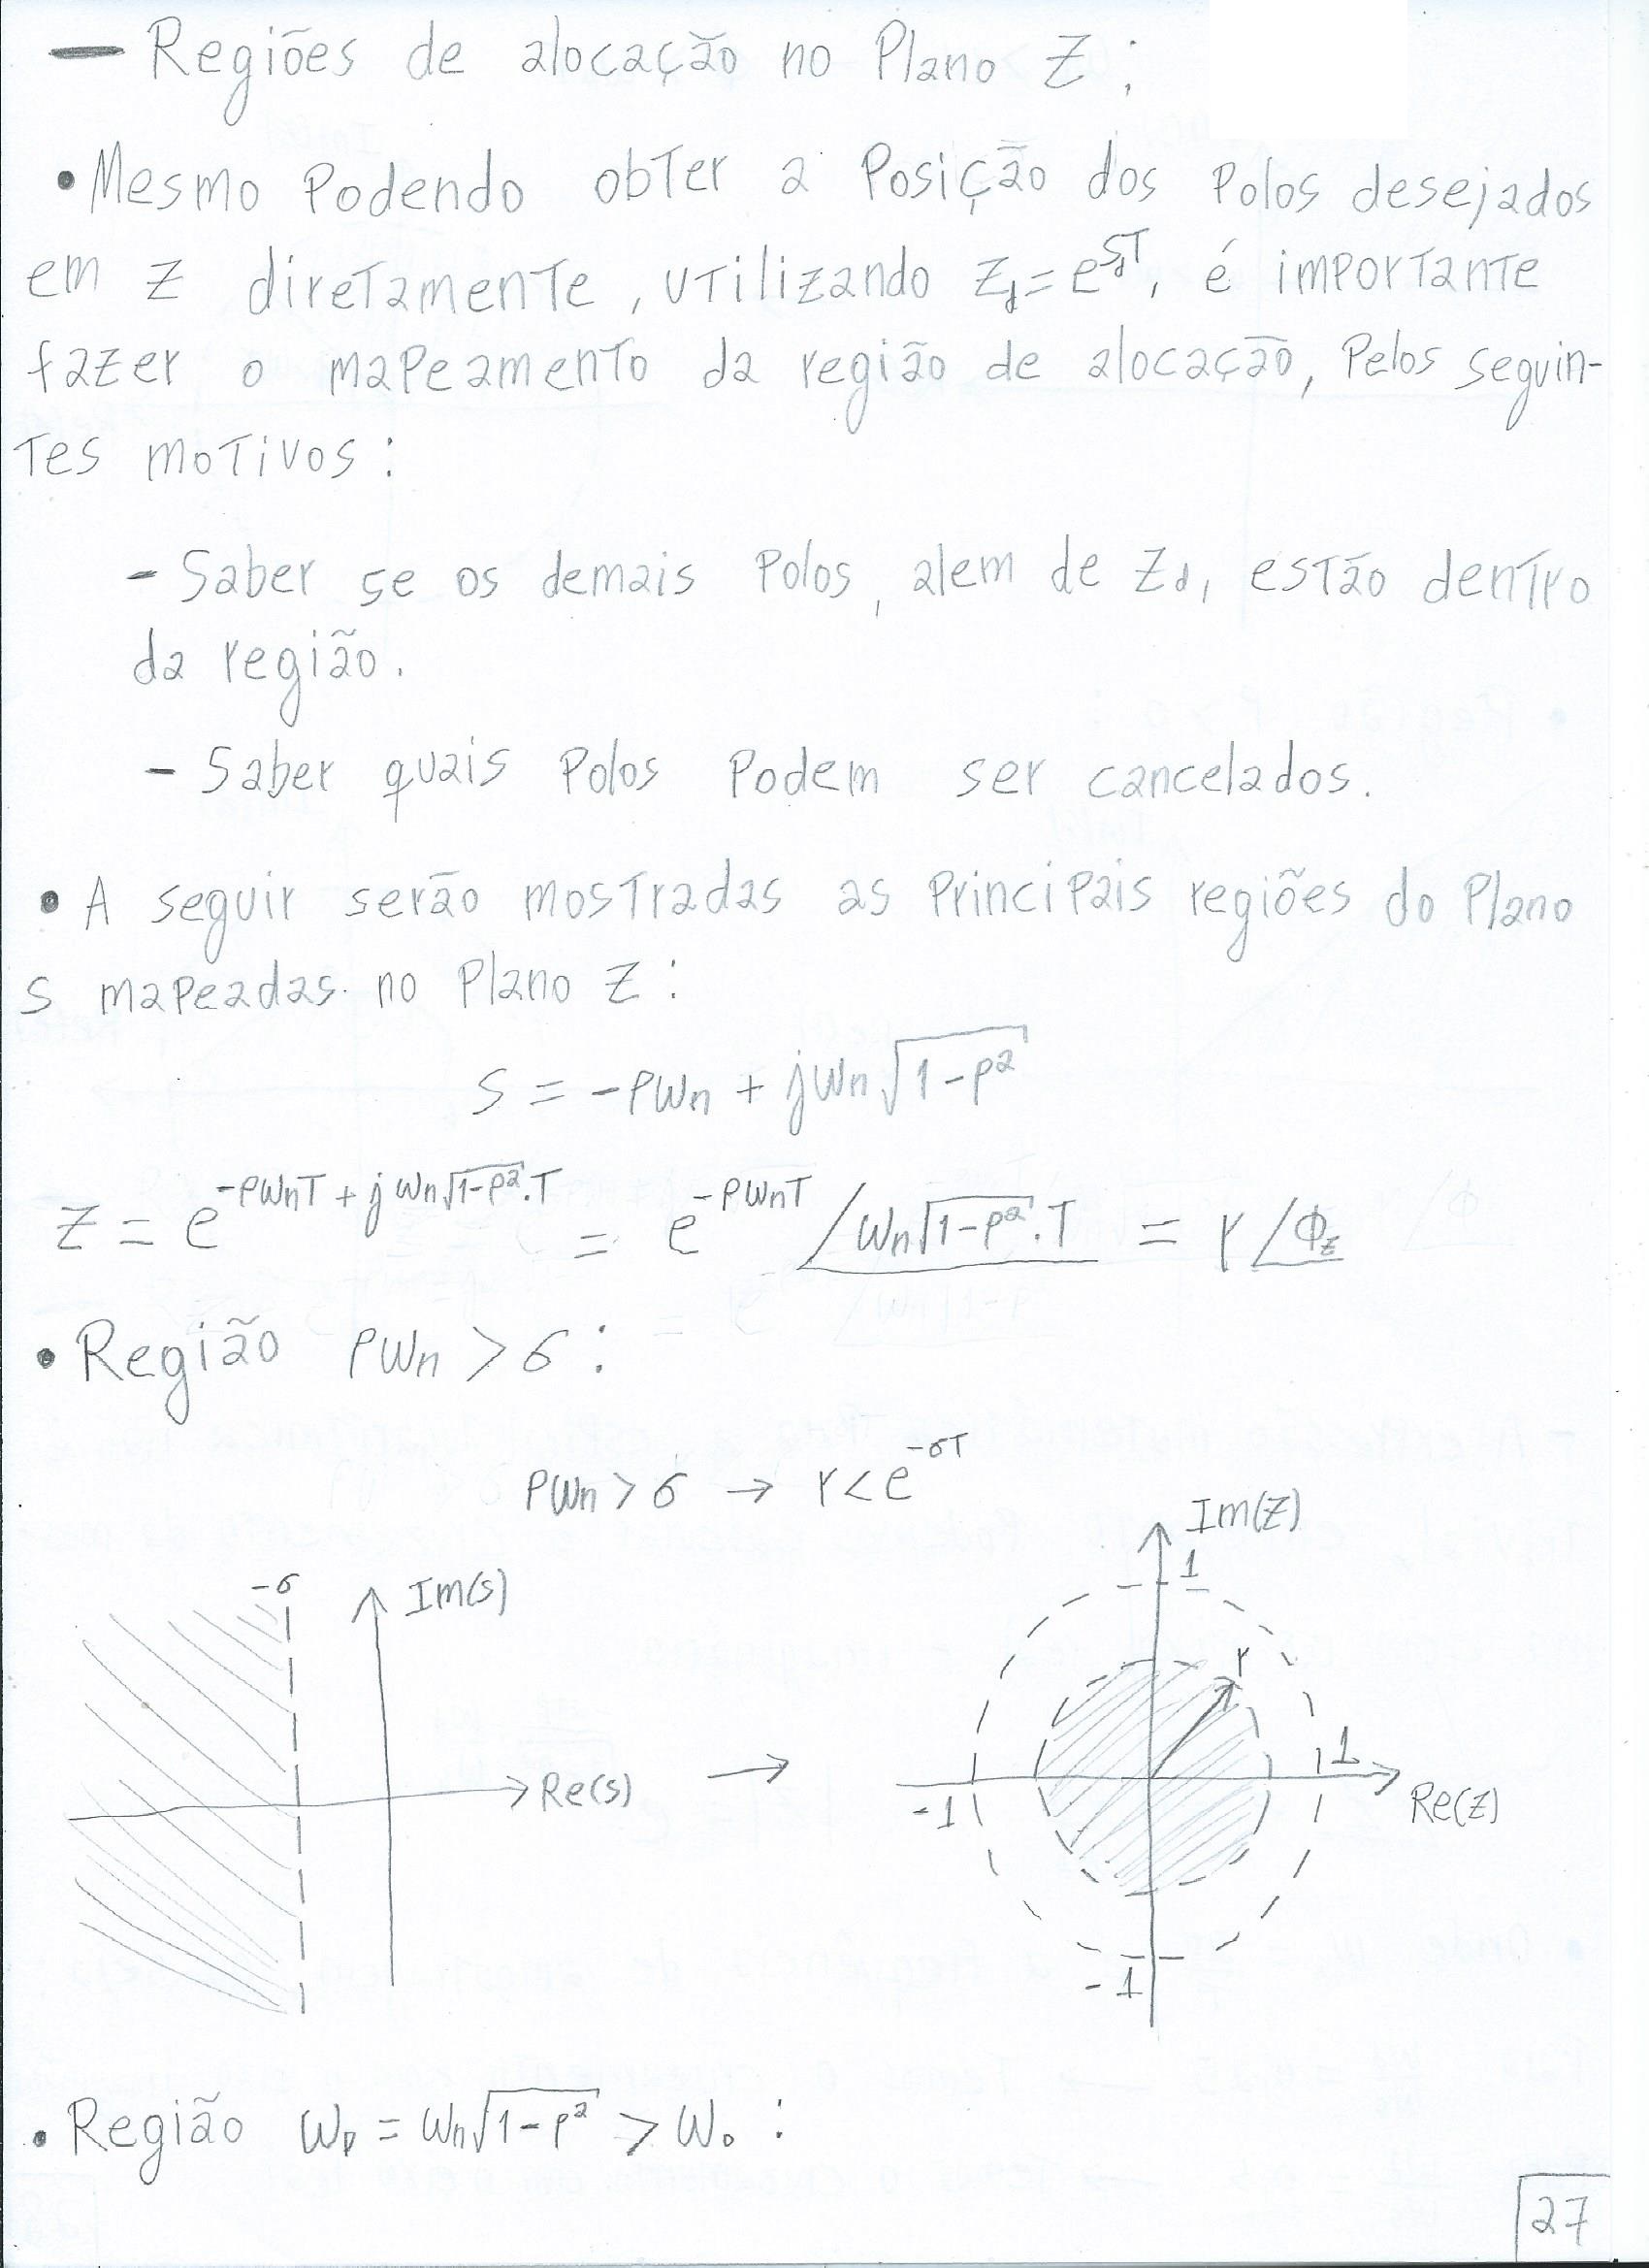 — Regiões de alocação no Plano Z:
• Mesmo Podendo obter a Posição dos Polos desejados
em Z diretamente, utilizando Z_d = e^{S_d T}, é importante
fazer o mapeamento da região de alocação, Pelos seguin-
tes motivos:
- Saber se os demais Polos, alem de Z_d, estão dentro
da região.
- Saber quais Polos Podem ser cancelados.
• A seguir serão mostradas as Principais regiões do Plano
s mapeadas no Plano Z:
S = -ρωn + jωn√(1-ρ²)
Z = e^{-ρωnT + jωn√(1-ρ²).T} = e^{-ρωnT} ∠ωn√(1-ρ²).T = r ∠Φ_z
• Região ρωn > σ:
ρωn > σ → r < e^{-σT}
-σ Im(s)
Re(s)
→
Im(Z)
1
r
-1 1
Re(Z)
-1
• Região ω_p = ωn√(1-ρ²) > ω_0:
27